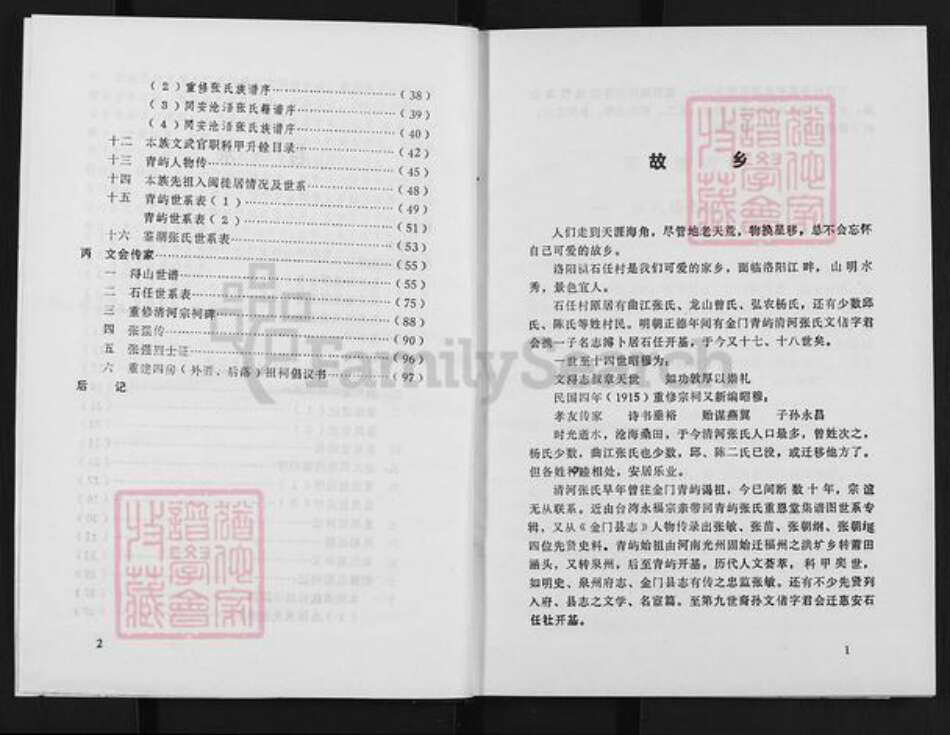 （2）重修张氏族谱序……（38）
（3）同安沧浯张氏籍谱序……（39）
（4）同安沧浯张氏族谱序……（40）
十二 本族文武官职科甲升铨目录……（42）
十三 青屿人物传……（45）
十四 本族先祖入闽徙居情况及世系……（48）
十五 青屿世系表（1）……（49）
青屿世系表（2）……（51）
十六 鉴湖张氏世系表……（53）
丙 文会传家……（55）
一 浔山世谱……（55）
二 石任世系表……（75）
三 重修清河宗祠碑……（88）
四 张强传……（90）
五 张强烈士证……（96）
六 重建四房（外厝、后落）祖祠倡议书……（97）
后 记
2
故 乡
人们走到天涯海角，尽管地老天荒，物换星移，总不会忘怀
自己可爱的故乡。
洛阳镇石任村是我们可爱的家乡，面临洛阳江畔，山明水
秀，景色宜人。
石任村原居有曲江张氏、龙山曾氏、弘农杨氏，还有少数邱
氏、陈氏等姓村民。明朝正德年间有金门青屿的清河张氏文偆字君
会携一子名志溥卜居石任开基，于今又十七、十八世矣。
一世至十四世昭穆为：
文溥志叔章天世 如功敦厚以崇礼
民国四年（1915）重修宗祠又新编昭穆：
孝友传家 诗书垂裕 贻谋燕翼 子孙永昌
时光逝水，沧海桑田，于今清河张氏人口最多，曾姓次之，
杨氏少数，曲江张氏也少数，邱、陈二氏已没，或迁移他方了。
但各姓和睦相处，安居乐业。
清河张氏早年曾往金门青屿谒祖，今已间断数十年，宗谊
无从联系。近由台湾永福宗亲带回青屿张氏重恩堂集谱图世系专
辑，又从《金门县志》人物传录出张敏、张苗、张朝纲、张朝綖
四位先贤史料。青屿始祖由河南光州固始迁福州之洪圹乡转莆田
涵头，又转泉州，后至青屿开基，历代人文荟萃，科甲奕世，
如明史、泉州府志、金门县志有传之忠监张敏。还有不少先贤列
入府、县志之文学、名宦篇。至第九世裔孙文偆字君会迁惠安石
任社开基。
1
FamilySearch